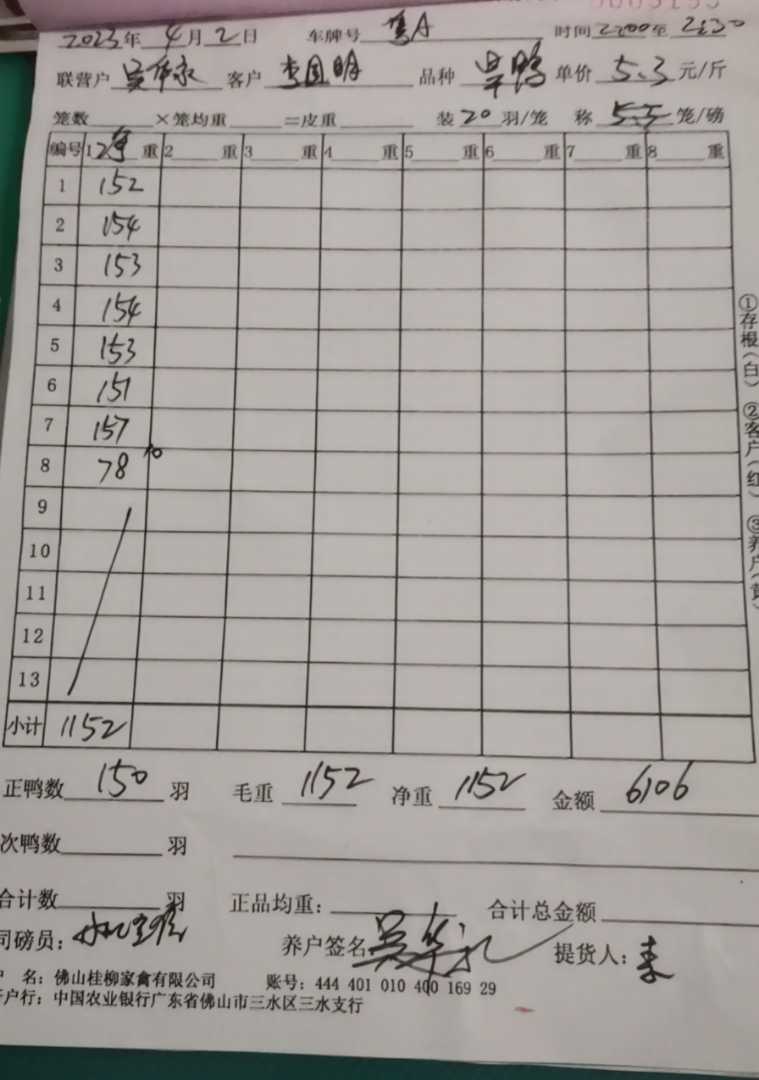 2023年 4月 2日 车牌号 粤A 时间 2200至 2230
联营户 吴华永 客户 李国明 品种 旱鸭 单价 5.3 元/斤
笼数 ×笼均重 =皮重 装 20 羽/笼 称 5.5 笼/磅
编号 1 净重 2 重 3 重 4 重 5 重 6 重 7 重 8 重
1 152
2 154
3 153
4 154
5 153
6 151
7 157
8 78 10
9
10
11
12
13
小计 1152
正鸭数 150 羽 毛重 1152 净重 1152 金额 6106
次鸭数 羽
合计数 羽 正品均重: 合计总金额
司磅员: 养户签名 吴华永 提货人: 李
户 名: 佛山桂柳家禽有限公司 账号: 444 401 010 400 169 29
开户行: 中国农业银行广东省佛山市三水区三水支行
①存根(白) ②客户(红) ③养户(黄